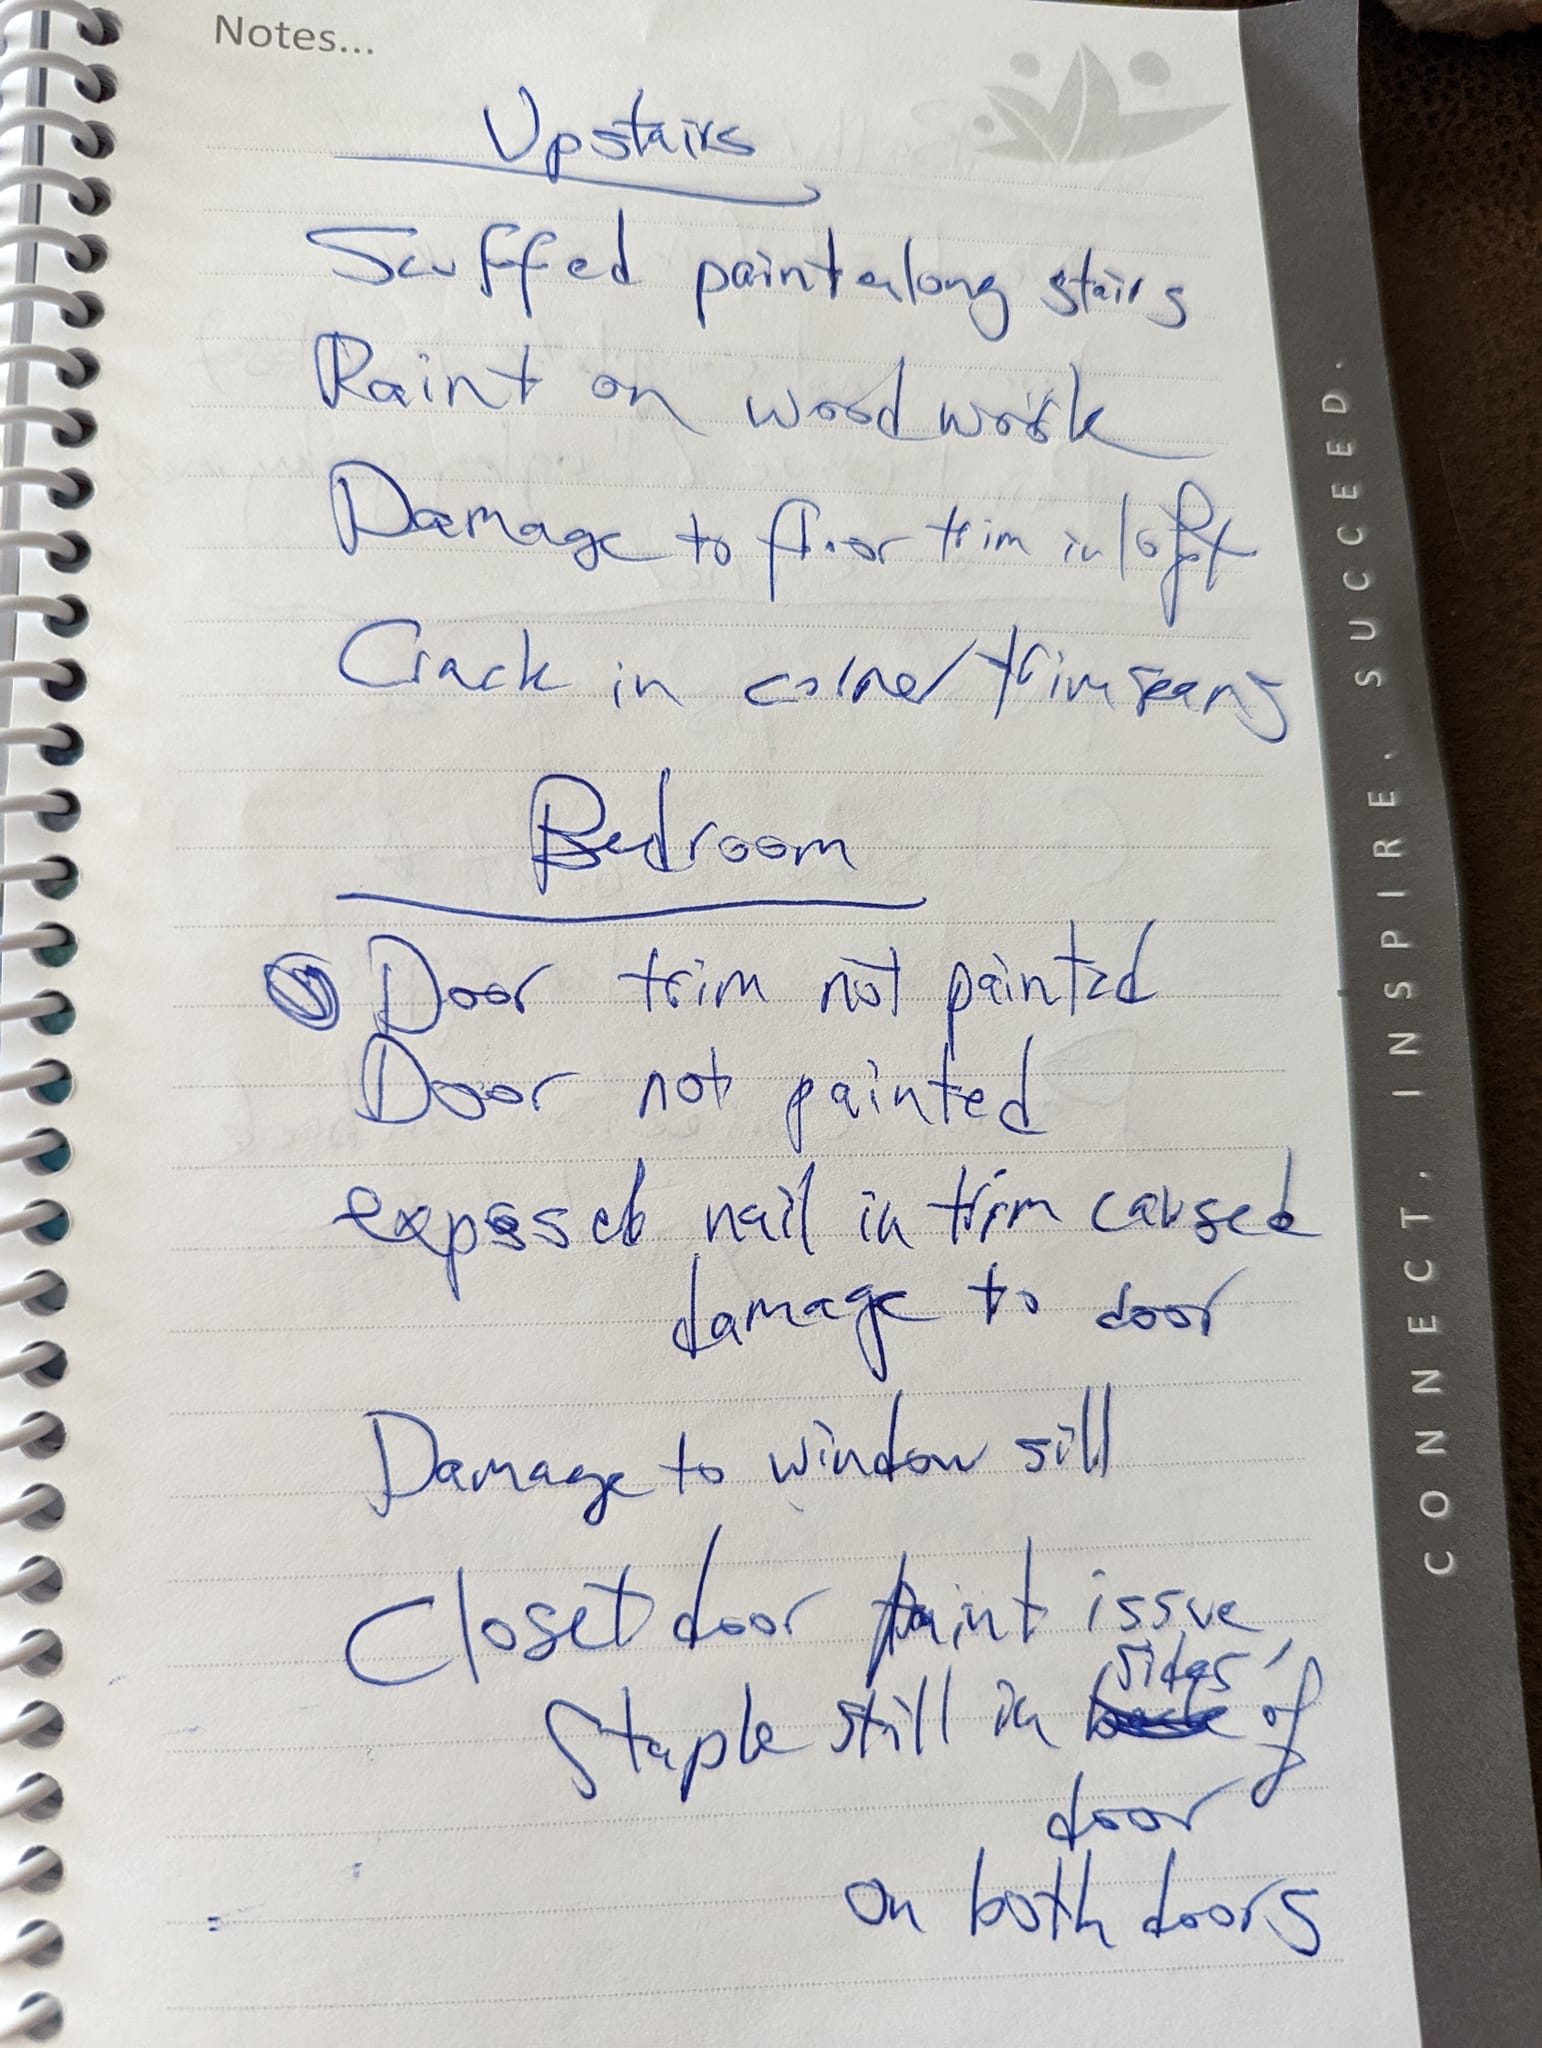 Notes...
Upstairs
Scuffed paint along stairs
Paint on woodwork
Damage to floor trim in loft
Crack in corner/trim seams
Bedroom
Door trim not painted
Door not painted
exposed nail in trim caused
damage to door
Damage to window sill
Closet door paint issue,
sides
Staple still in of
door
on both doors
CONNECT. INSPIRE. SUCCEED.